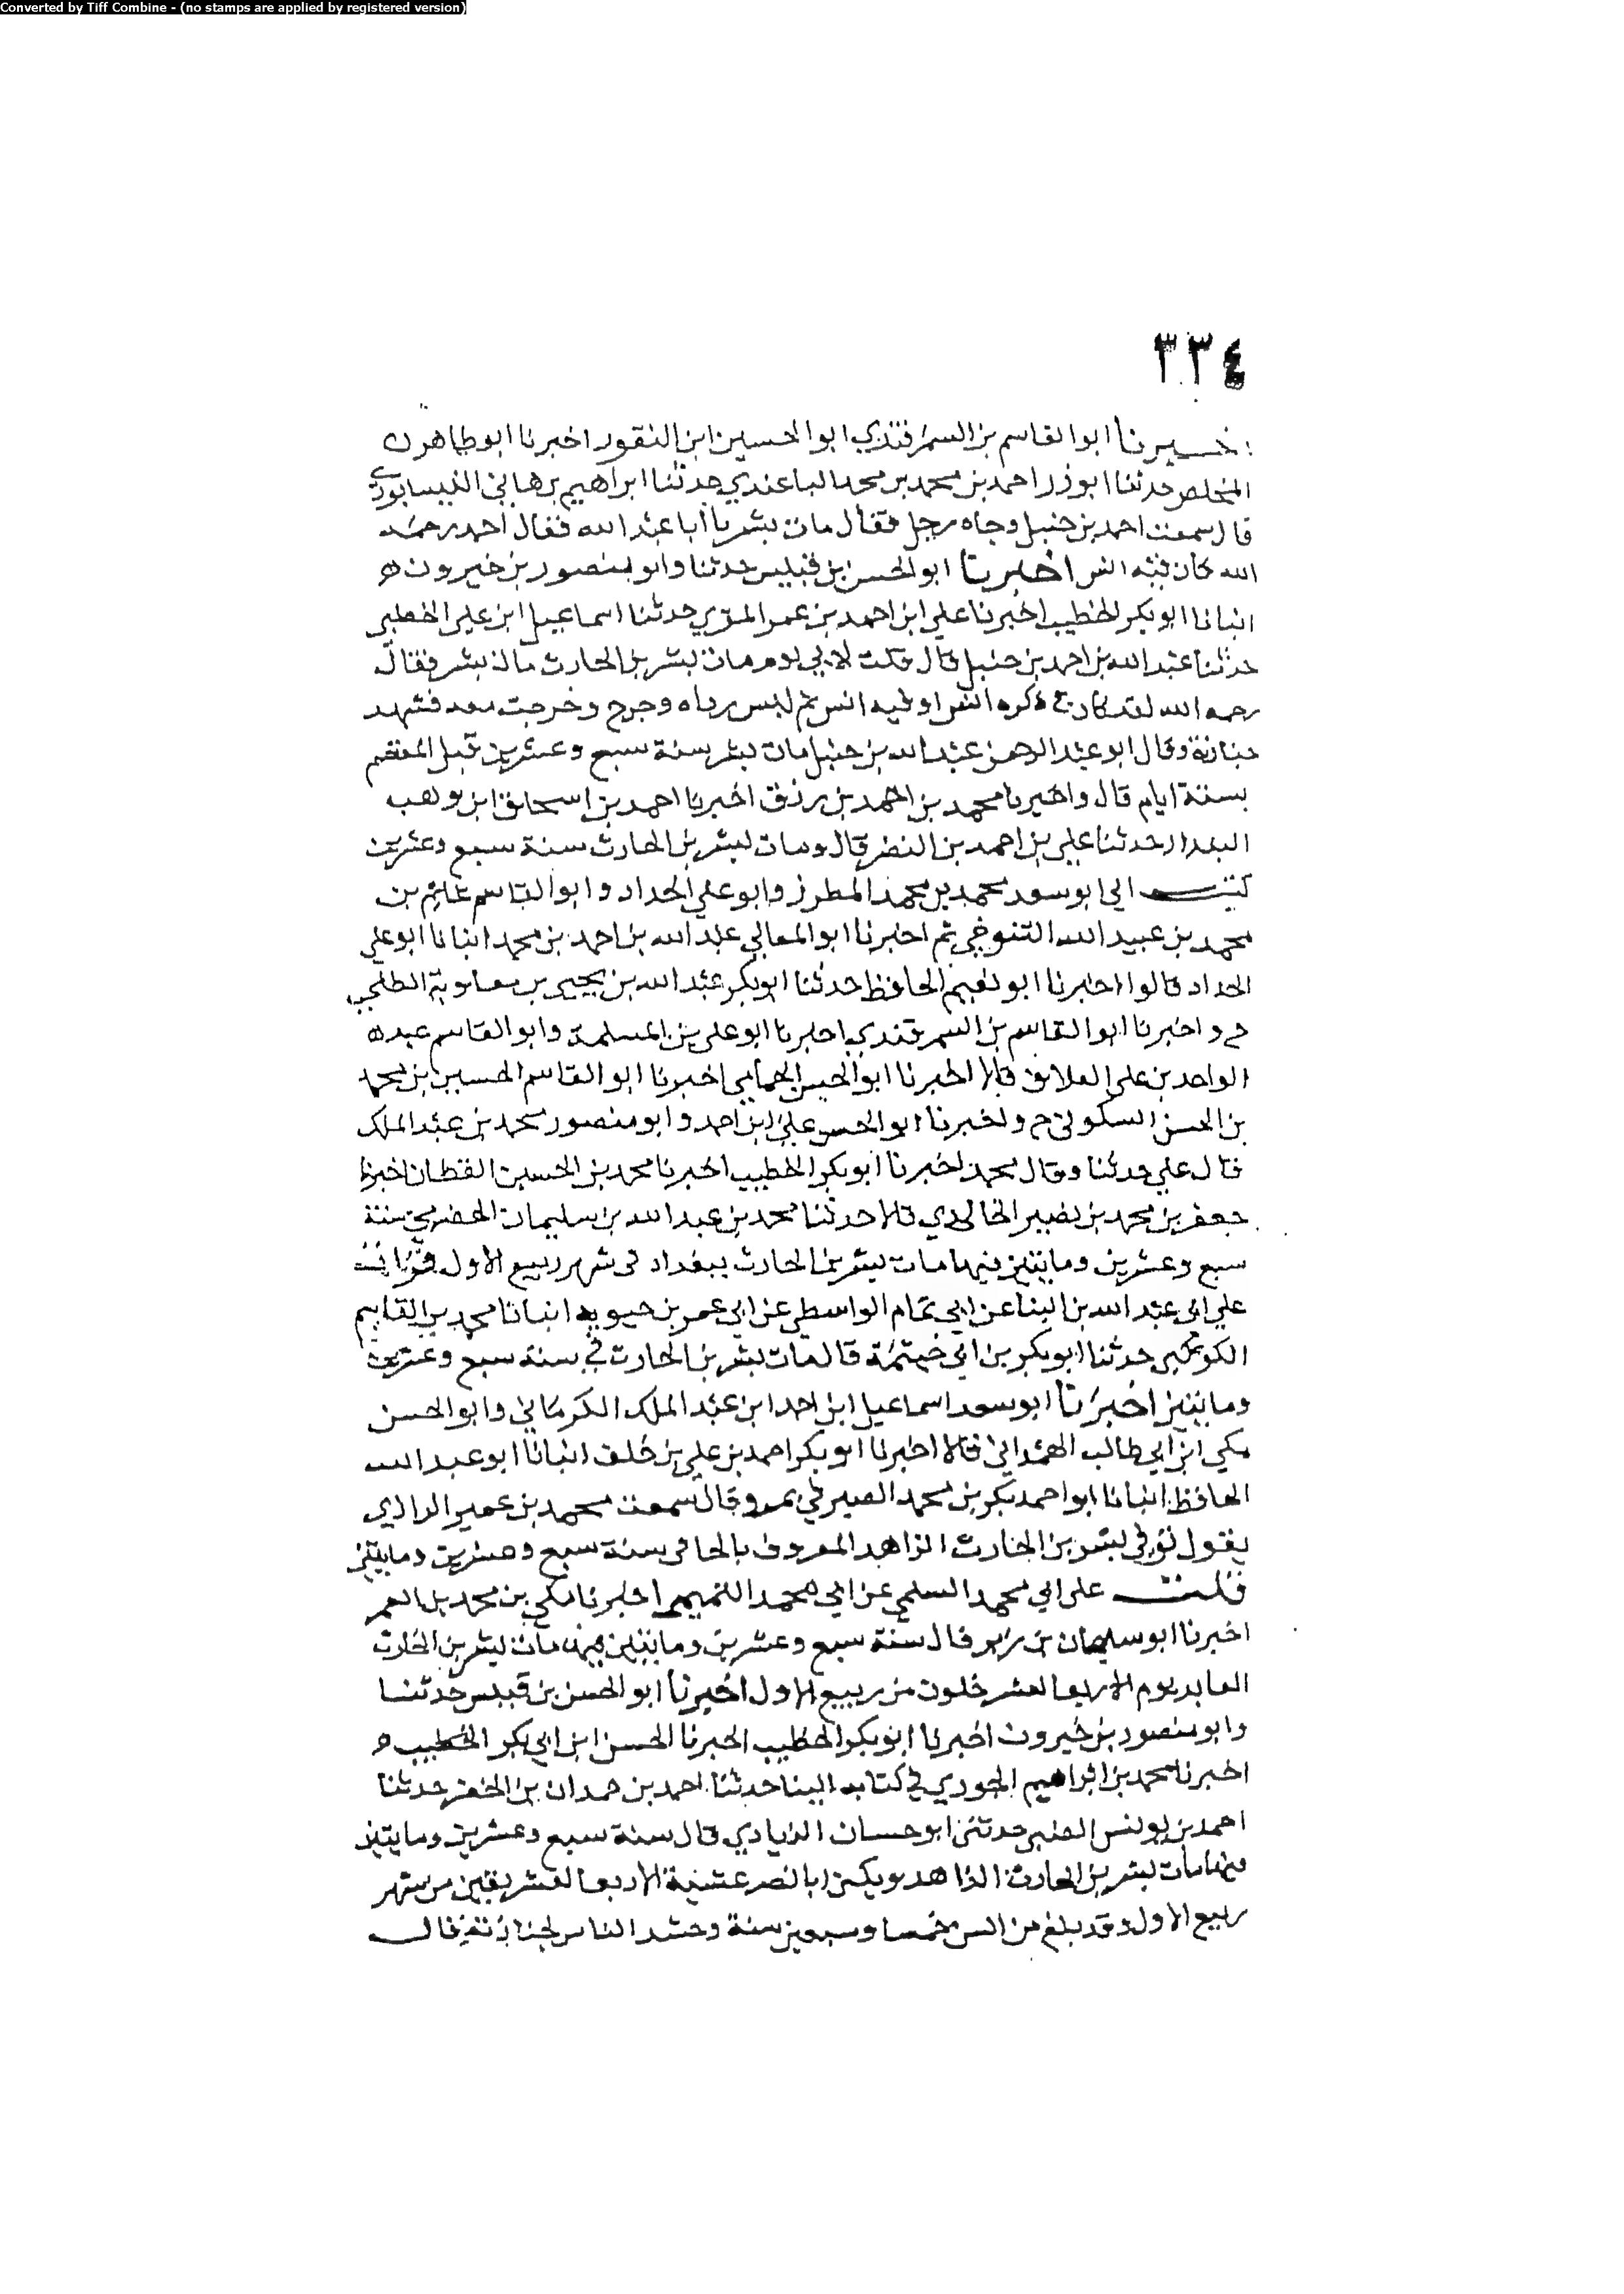 Converted by Tiff Combine - (no stamps are applied by registered version)
٣٣٤
اخبرنا ابو القاسم بن السمرقندي ابو الحسين ابن النقور اخبرنا ابو طاهر
المخلص حدثنا ابو ذر احمد بن محمد بن محمد الباغندي حدثنا ابراهيم بن هاني النيسابوري
قال سمعت احمد بن حنبل وجاه رجل فقال مات بشر يا أبا عبد الله فقال احمد رحمه
الله كان فيه انس اخبرنا ابو الحسن بن قبيس حدثنا وابو منصور بن خيرون
انبانا ابو بكر الخطيب اخبرنا علي ابن احمد بن عمر المقري حدثنا اسماعيل ابن علي الخطبي
حدثنا عبد الله بن احمد بن حنبل قال قلت لابي يوم مات بشر بن الحارث مات بشر فقال
رحمه الله لقد كان في ذكره انس او فيه انس ثم لبس رداه وخرج وخرجت معه فشهد
جنازته وقال ابو عبد الرحمن عبد الله بن حنبل مات بشر سنة سبع وعشرين قبل المعتصم
بستة ايام قال واخبرنا محمد بن احمد بن رزق اخبرنا احمد بن اسحاق ابن وهب
البندار حدثنا علي بن احمد بن النضر قال ومات بشر بن الحارث سنة سبع وعشرين
كتب الي ابو سعد محمد بن محمد المطرز وابو علي الحداد وابو القاسم غانم بن
محمد بن عبيد الله التنوخي ثم اخبرنا ابو المعالي عبد الله بن احمد بن محمد انبانا ابو علي
الحداد قالوا اخبرنا ابو نعيم الحافظ حدثنا ابو بكر عبد الله بن يحيى بن معاوية الطلحي
ح واخبرنا ابو القاسم بن السمرقندي اخبرنا ابو علي بن المسلمة وابو القاسم عبد
الواحد بن علي العلاف قالا اخبرنا ابو الحسن الحمامي اخبرنا ابو القاسم الحسين بن محمد
بن الحسن السكوني ح واخبرنا ابو الحسن علي ابن احمد وابو منصور محمد بن عبد الملك
قال علي حدثنا وقال محمد اخبرنا ابو بكر الخطيب اخبرنا محمد بن الحسين القطان اخبرنا
جعفر بن محمد بن نصير الخالدي قالا حدثنا محمد بن عبد الله بن سليمان الحضرمي سنة
سبع وعشرين ومايتين فيها مات بشر بن الحارث ببغداد في شهر ربيع الاول قرات
علي ابي عبد الله بن البنا عن ابي تمام الواسطي عن ابي عمر بن حيويه انبانا محمد بن القاسم
الكوكبي حدثنا ابو بكر بن ابي خيثمة قال مات بشر بن الحارث في سنة سبع وعشرين
ومايتين اخبرنا ابو سعد اسماعيل ابن احمد ابن عبد الملك الكرماني وابو الحسن
مكي ابن ابي طالب الهمداني قالا اخبرنا ابو بكر احمد بن علي بن خلف انبانا ابو عبد الله
الحافظ انبانا ابو احمد بكر بن محمد الصيرفي بمرو قال سمعت محمد بن عمير الرازي
يقول توفي بشر بن الحارث الزاهد المعروف بالحافي سنة سبع وعشرين ومايتين
قلت على ابي محمد السلمي عن ابي محمد التميمي اخبرنا مكي بن محمد بن الغمر
اخبرنا ابو سليمان بن زبر قال سنة سبع وعشرين ومايتين فيها مات بشر بن الحارث
العابد يوم الاربعا لعشر خلون من ربيع الاول اخبرنا ابو الحسن بن قبيس حدثنا
وابو منصور بن خيرون اخبرنا ابو بكر الخطيب اخبرنا الحسن ابن ابي بكر الخطيب
اخبرنا محمد بن ابراهيم الجوري في كتابه الينا حدثنا احمد بن حمدان بن الخضر حدثنا
احمد بن يونس الضبي حدثني ابو حسان الزيادي قال سنة سبع وعشرين ومايتين
فيها مات بشر بن الحارث الزاهد ويكنى ابا نصر عشية الاربعا لعشر بقين من شهر
ربيع الاول وقد بلغ من السن خمسا وسبعين سنة وحشد الناس لجنازته قال